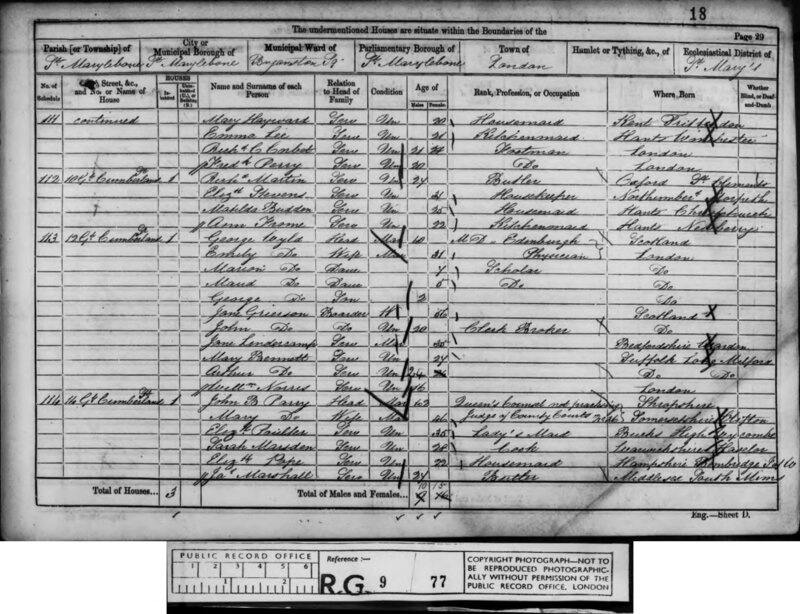 18
The undermentioned Houses are situate within the Boundaries of the
Page 29
Parish [or Township] of
City or Municipal Borough of
Municipal Ward of
Parliamentary Borough of
Town of
Hamlet or Tything, &c., of
Ecclesiastical District of
St. Marylebone
St. Marylebone
Bryanston Sq
St. Marylebone
London
St. Mary's
No. of Schedule
Street, &c., and No. or Name of House
HOUSES
Inhabited
Name and Surname of each Person
Relation to Head of Family
Condition
Age of
Males
Females
Rank, Profession, or Occupation
Where Born
Whether Blind, or Deaf-and-Dumb
111 continued Mary Hayward Serv Un 20 Housemaid Kent
Emma Lee Serv Un Kitchenmaid Hants Winchester
C Corbett Serv Un 21 Footman London
Fredk Perry Serv Un 20 Do London
112 10 Gt Cumberland Pl 1 Martin Serv Un 24 Butler Oxford St Clements
Elizth Stevens Serv Un Housekeeper Northumbd Morpeth
Matilda Buddon Serv Un 25 Housemaid Hants Christchurch
Ann Frome Serv Un 22 Kitchenmaid Hants
113 12 Gt Cumberland Pl 1 George Wyld Head Mar 40 M D Edinburgh Scotland
Emily Do Wife Mar 31 Physician London
Marion Do Daur 7 Scholar Do
Maud Do Daur 5 Do Do
George Do Son 2 Do
Jane Grierson Boarder W 56 Scotland
John Do Do Un 20 Clerk Broker Do
Jane Serv 35 Bedfordshire
Mary Bennett Serv Un 24 Suffolk Long Melford
Arthur Do Serv Un 24 Do Do
Willm Norris Serv Un 16 London
114 14 Gt Cumberland Pl 1 John B Parry Head Mar 62 Queen's Counsel not practising Shropshire
Mary Do Wife Mar Judge of County Courts Somersetshire Clifton
Elizth Serv Un 35 Lady's Maid Bucks High Wycombe
Sarah Marsden Serv Un 28 Cook
Elizth Pope Serv Un 22 Housemaid Hampshire
Jas Marshall Serv Un 24 Butler Middlesex South Mims
Total of Houses... 3
Total of Males and Females...
10 15
Eng.—Sheet D.
PUBLIC RECORD OFFICE
1 2 3 4 5 6
1 2
Reference :-
R.G. 9 77
COPYRIGHT PHOTOGRAPH—NOT TO
BE REPRODUCED PHOTOGRAPHIC-
ALLY WITHOUT PERMISSION OF THE
PUBLIC RECORD OFFICE, LONDON